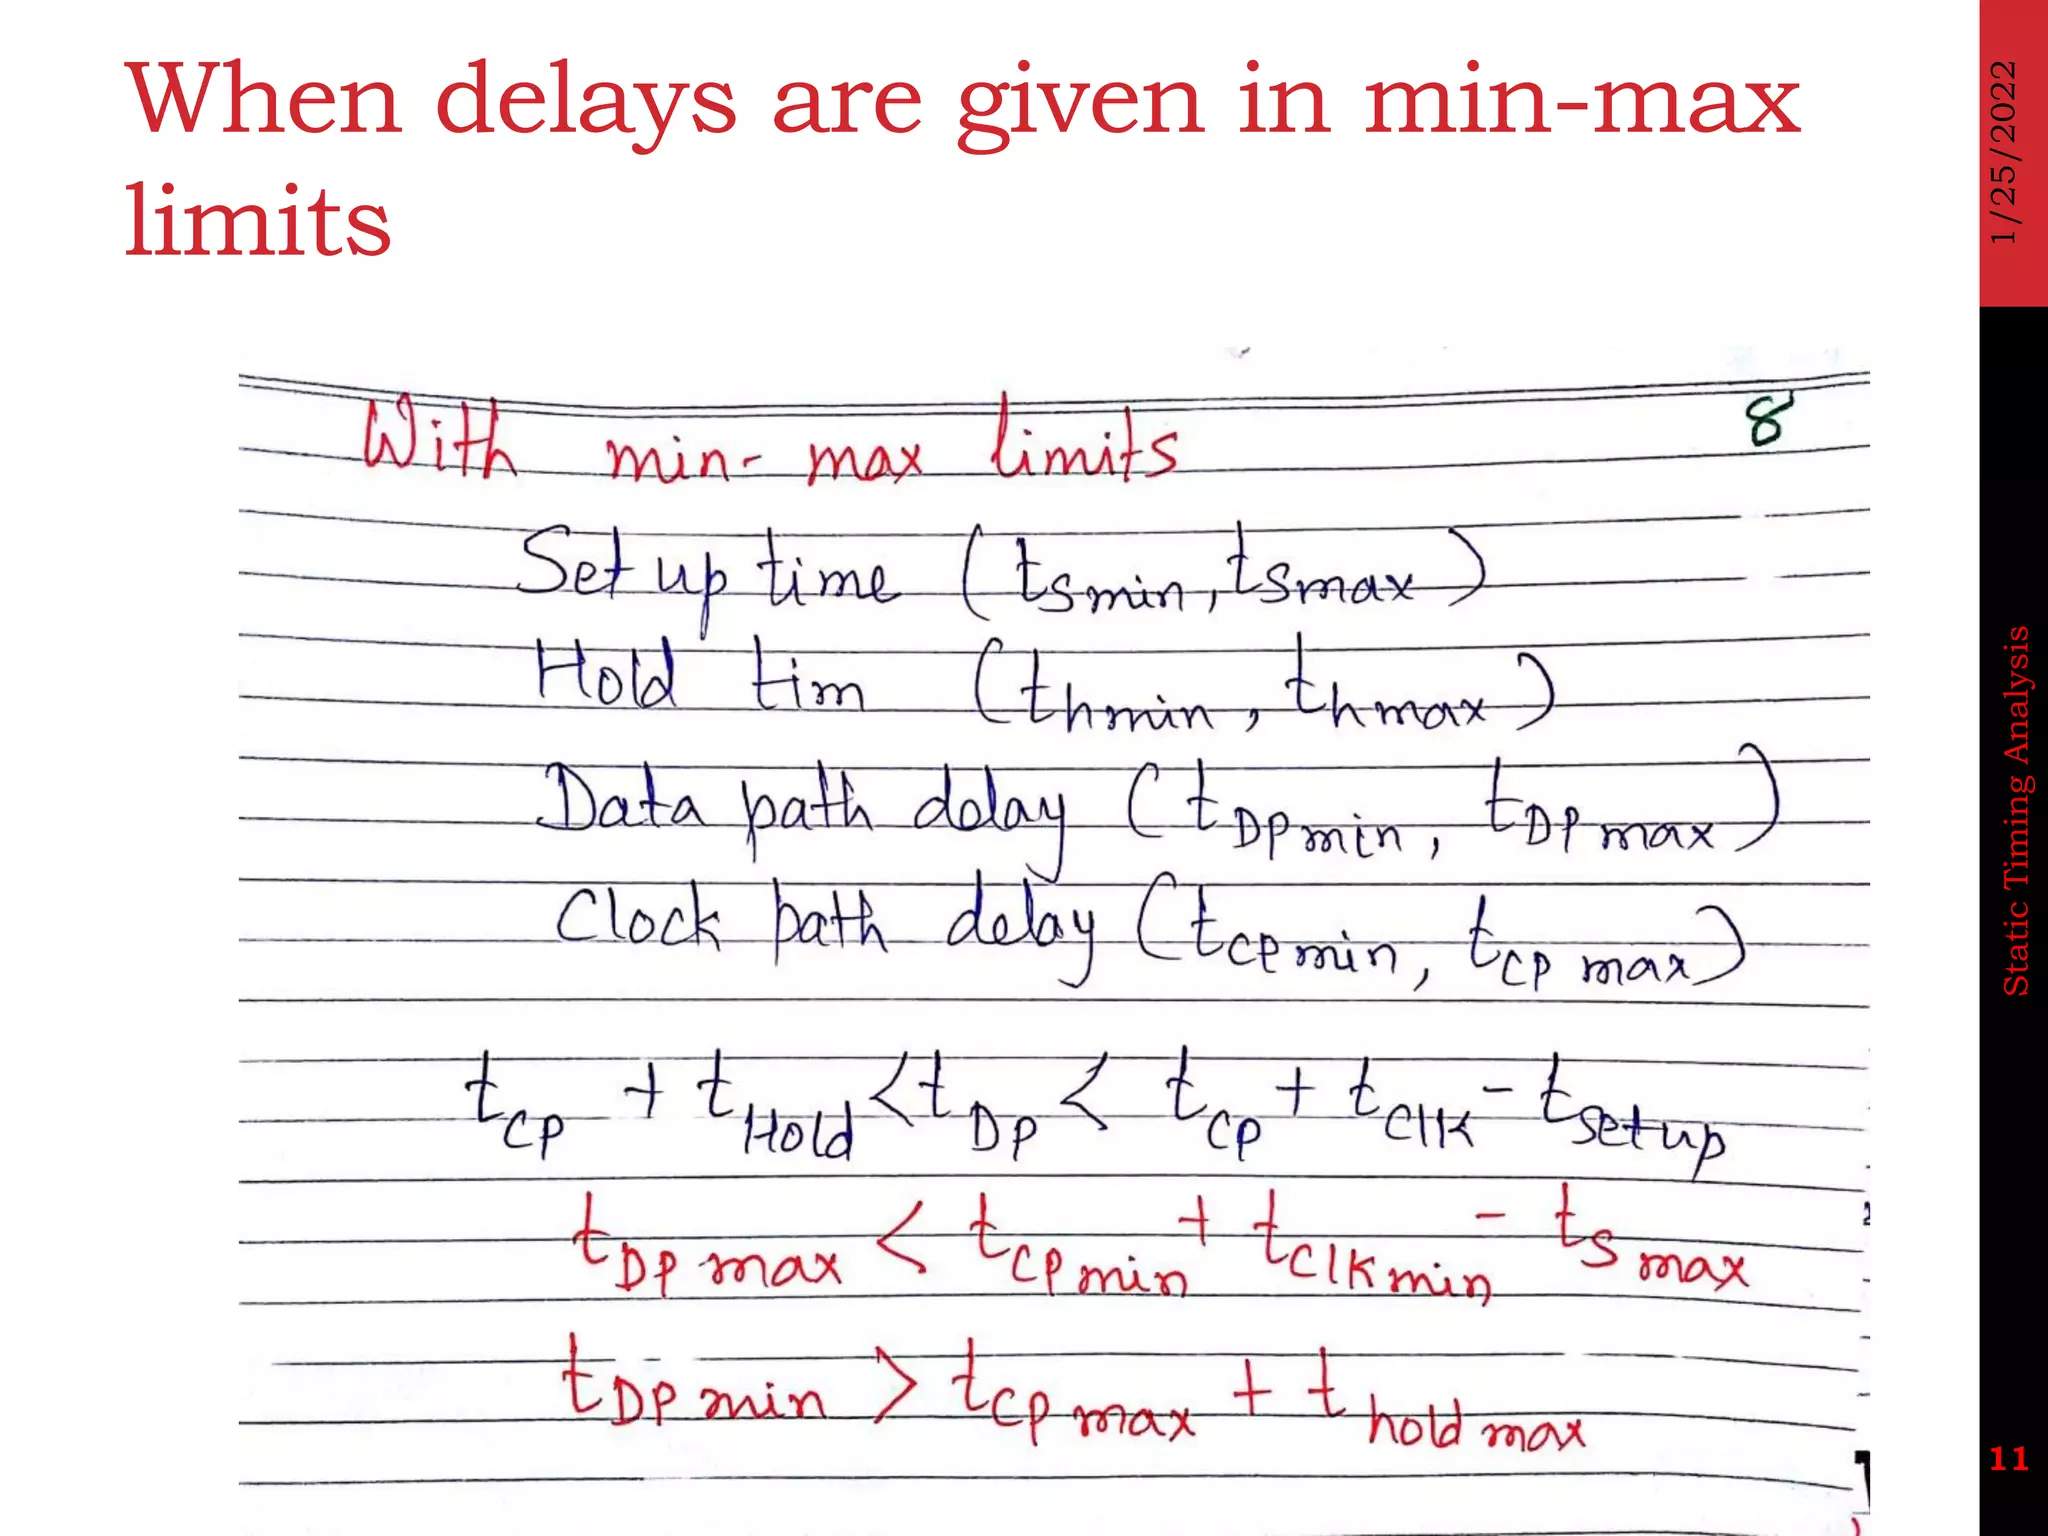 When delays are given in min-max
limits
1/25/2022
With min-max limits
8
Setup time (tsmin, tsmax)
Hold tim (thmin, thmax)
Data path delay (tDPmin, tDPmax)
Clock path delay (tCPmin, tCPmax)
tCP + tHold < tDP < tCP + tClK - tSetup
tDPmax < tCPmin + tClKmin - tSmax
tDPmin > tCPmax + tholdmax
Static Timing Analysis
11